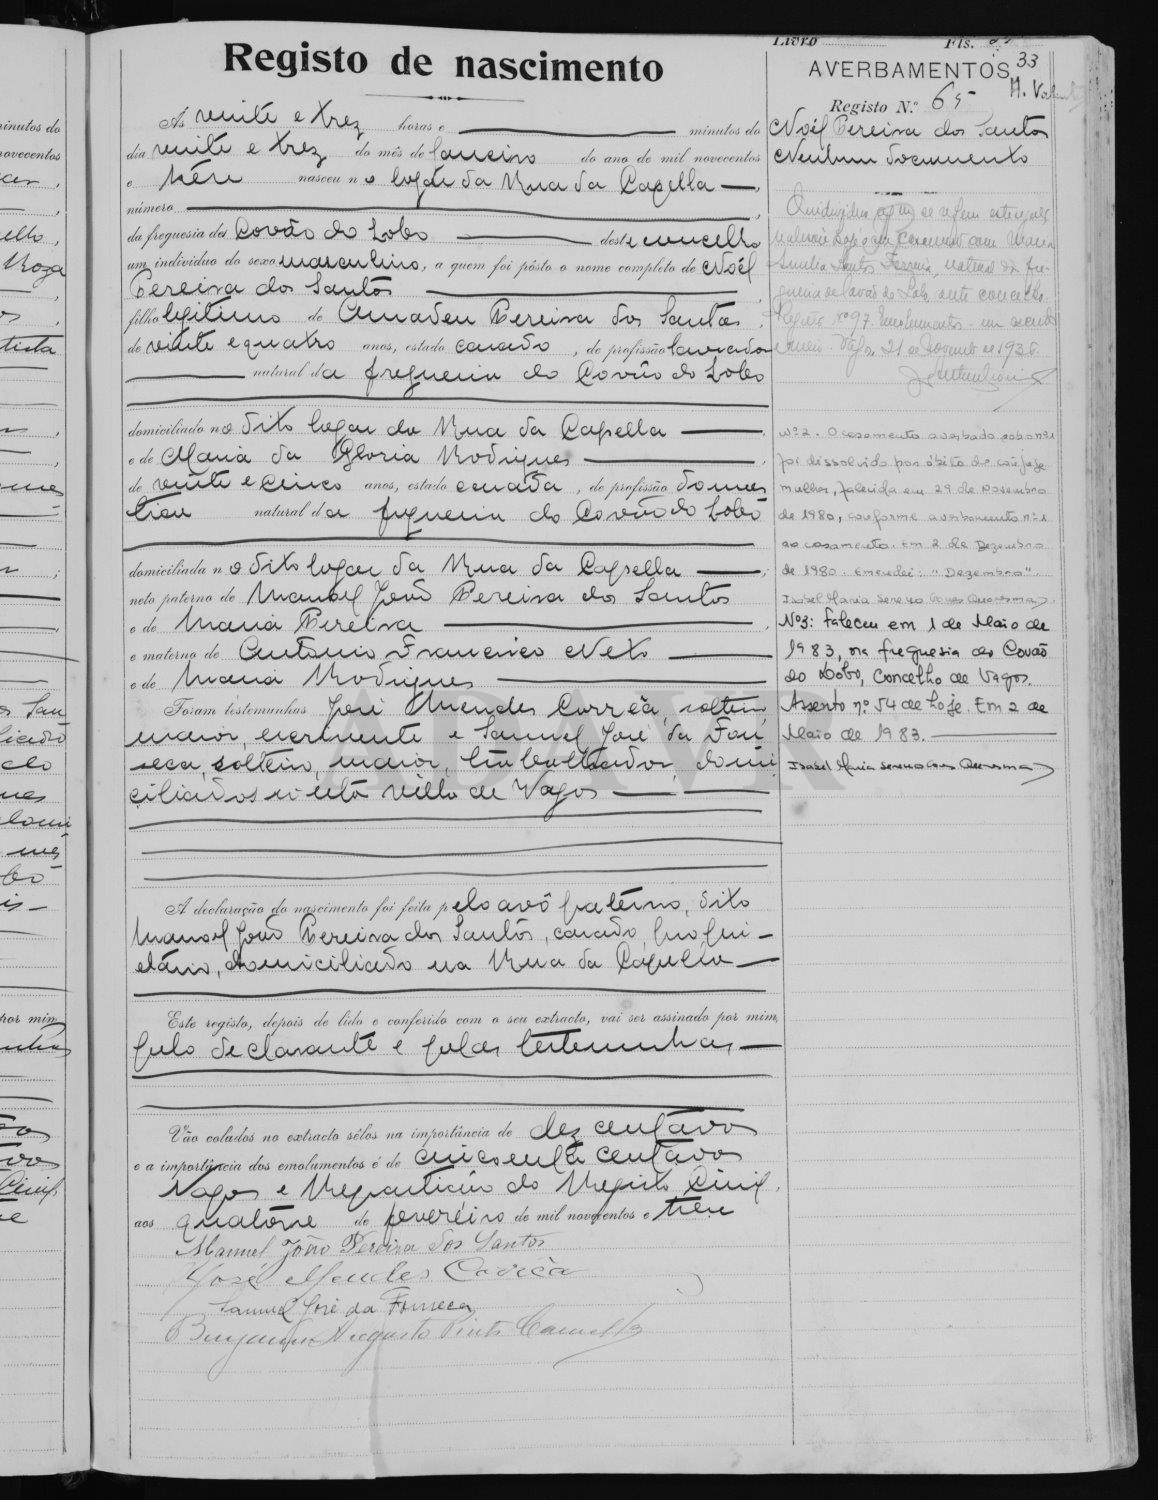 Registo de nascimento
Às vinte e trez horas e minutos do
dia vinte e trez do mês de Janeiro do ano de mil novecentos
e trêse nasceu no logar da Rua da Capella
número
da freguesia de Covão do Lobo deste concelho
um individuo do sexo masculino, a quem foi pôsto o nome completo de Noél
Pereira dos Santos
filho legitimo de Amadeu Pereira dos Santos
de vinte e quatro anos, estado casado, de profissão lavrador
natural da freguesia do Covão do Lobo
domiciliado no dito logar da Rua da Capella
e de Maria da Gloria Rodrigues
de vinte e cinco anos, estado casada, de profissão domes
tica natural da freguesia do Covão do Lobo
domiciliada no dito logar da Rua da Capella
neto paterno de Manoel João Pereira dos Santos
e de Maria Pereira
e materno de Antonio Francisco Neto
e de Maria Rodrigues
Foram testemunhas José Mendes Corrêa, solteiro,
maior, escrevente e Samuel José da Fon
seca, solteiro, maior, trabalhador, domi
ciliados nesta villa de Vagos
A declaração do nascimento foi feita pelo avô paterno, dito
Manoel João Pereira dos Santos, casado, propri-
etário, domiciliado na Rua da Capella
Este registo, depois de lido e conferido com o seu extracto, vai ser assinado por mim,
pelo declarante e pelas testemunhas
Vão colados no extracto sêlos na importância de dez centavos
e a importância dos emolumentos é de cincoenta centavos
Vagos e Repartição do Registo Civil,
aos quatorse de fevereiro de mil novecentos e trese
Manuel João Pereira dos Santos
José Mendes Corrêa
Samuel José da Fonseca
Benjamim Augusto Pinto Camello
Livro Fls.
33
AVERBAMENTOS
Registo N.º 65
Noél Pereira dos Santos
Nenhum documento
O individuo a que se refere este registo
realisou hoje o seu casamento com Maria
Amelia Santos Ferreira, natural da fre-
guesia de Covão do Lobo, deste concelho.
Registo nº 97. Emolumentos um escudo
e meio. Vagos, 21 de de 1936.
Nº 2. O casamento averbado sob o nº 1
foi dissolvido por óbito do conjuge
mulher, falecida em 29 de Novembro
de 1980, conforme averbamento nº 1
ao casamento. Em 2 de Dezembro
de 1980. Emendei: "Dezembro".
Isabel Maria Sereno Gomes Quaresma
Nº3: Faleceu em 1 de Maio de
1983, na freguesia do Covão
do Lobo, Concelho de Vagos.
Assento nº 54 de hoje. Em 2 de
Maio de 1983.
Isabel Maria Sereno Gomes Quaresma
ADAVR